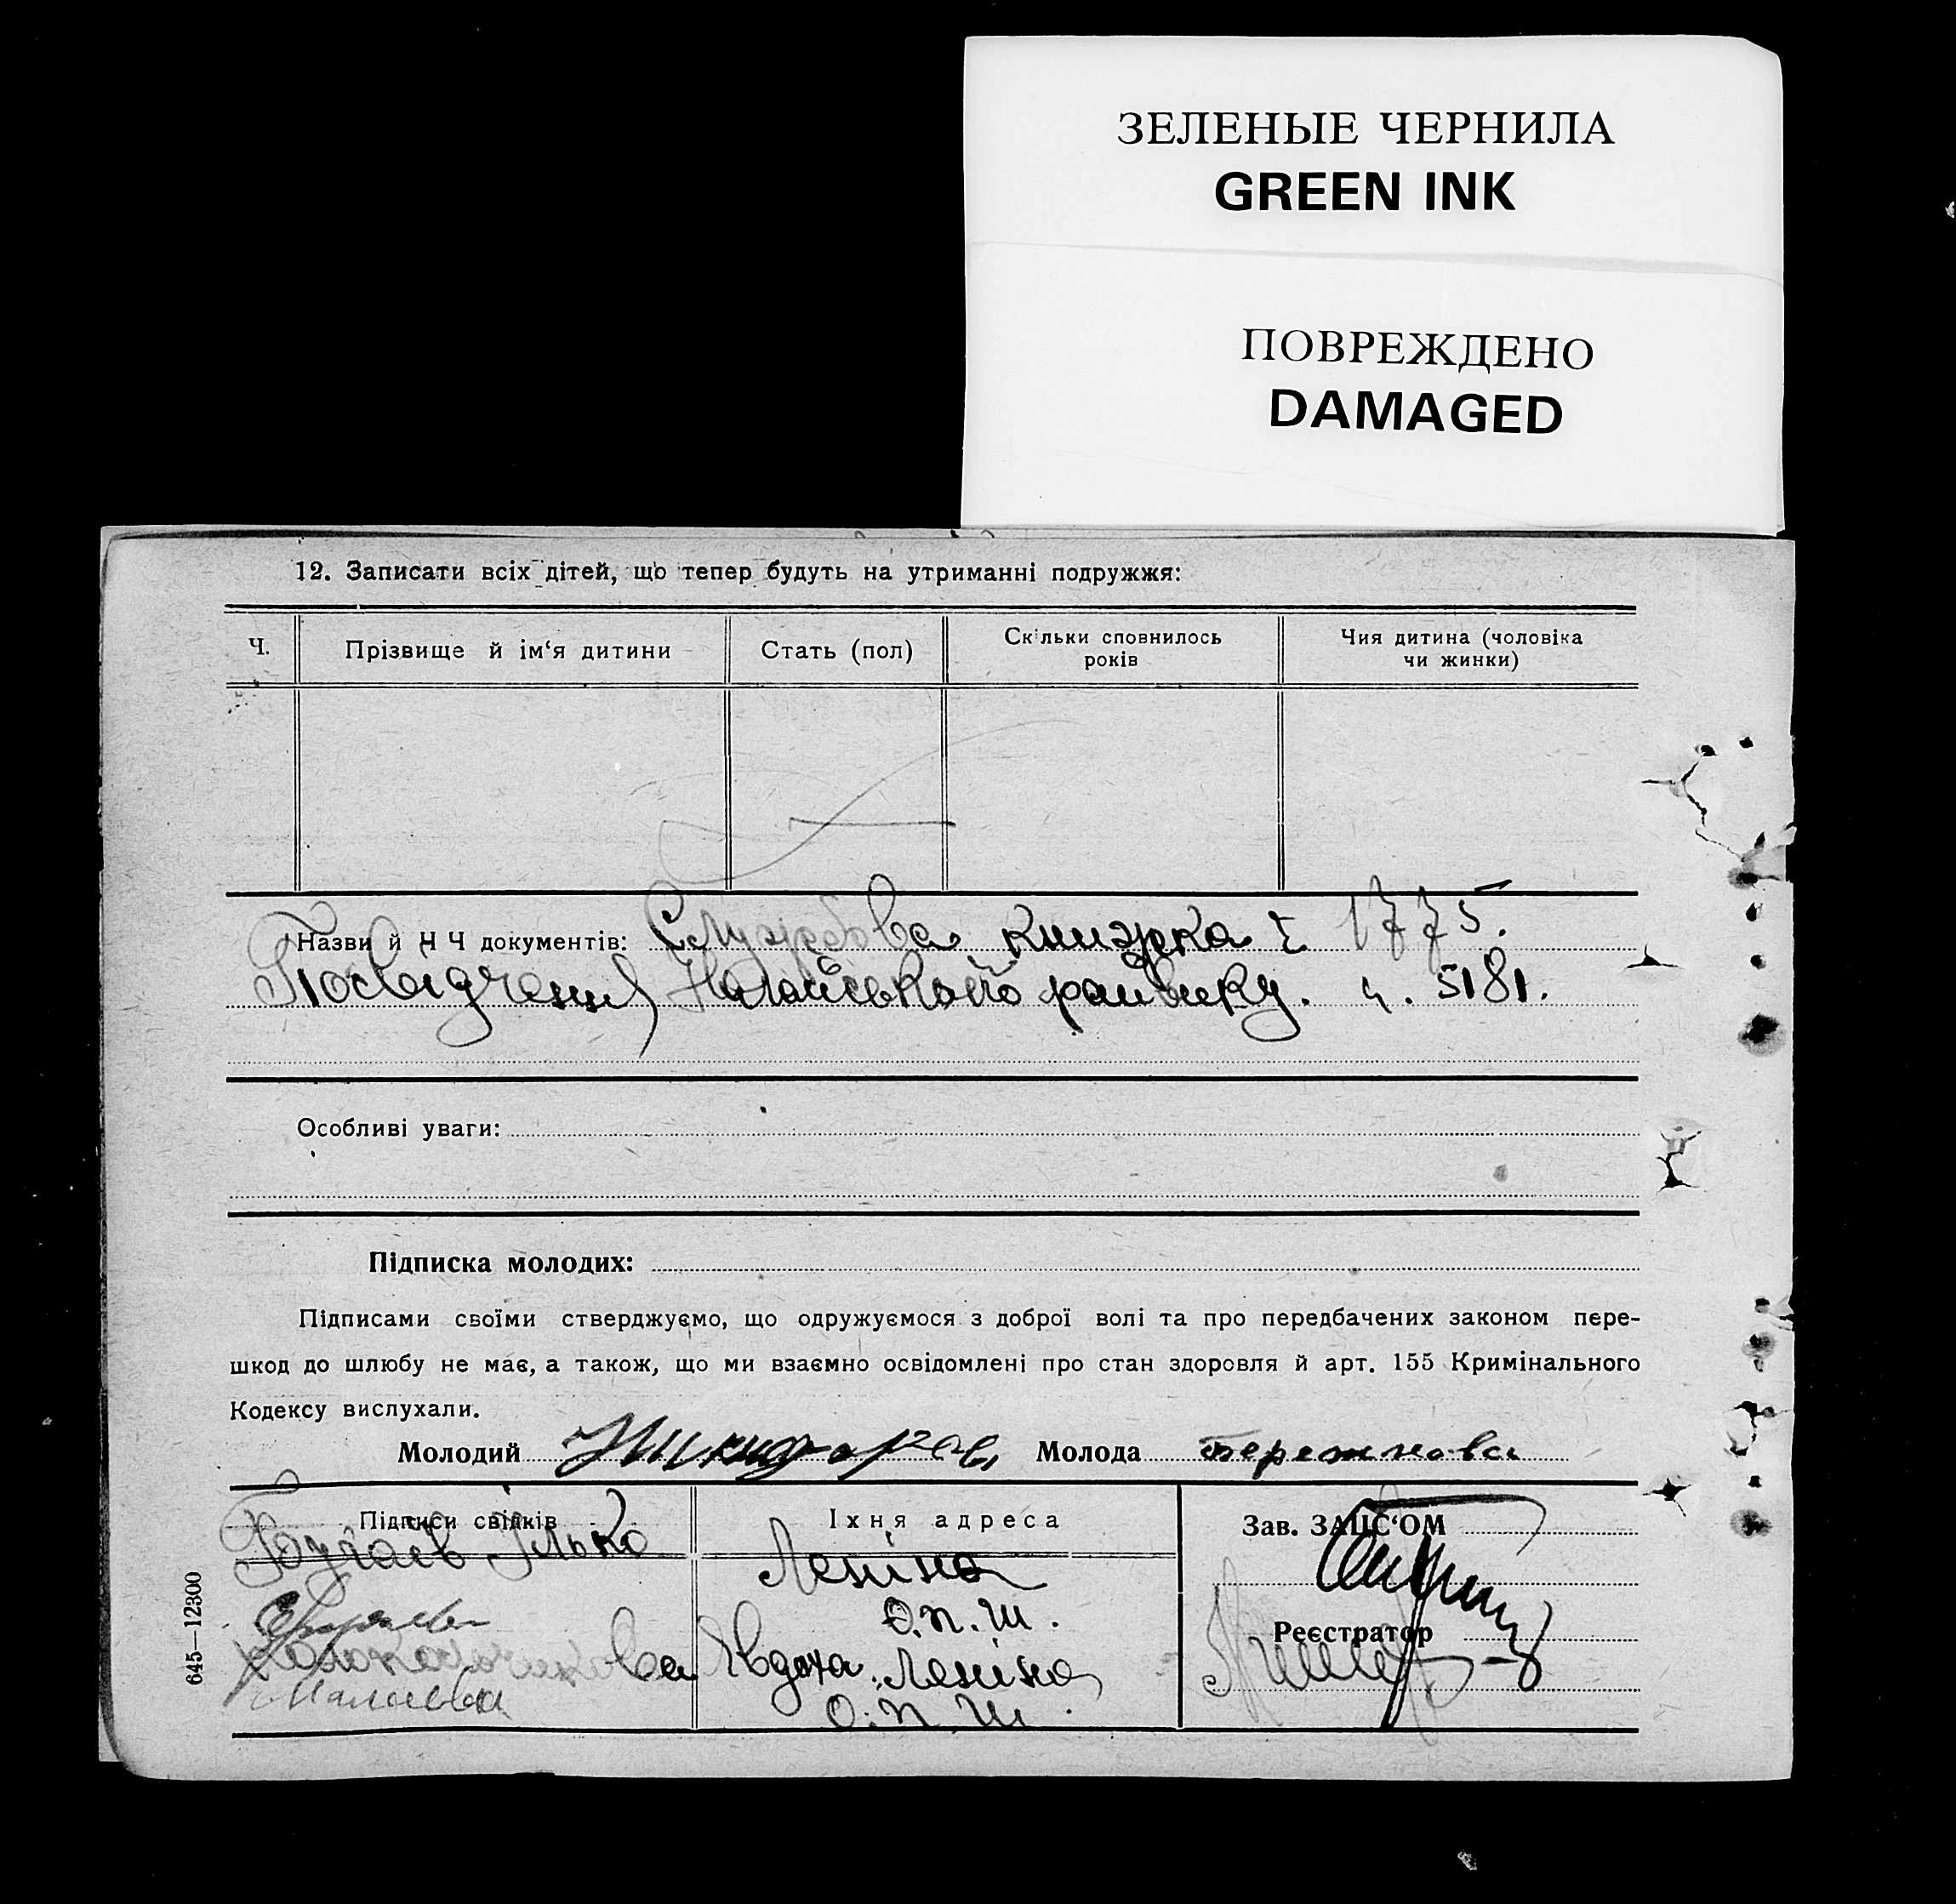 ЗЕЛЕНЫЕ ЧЕРНИЛА
GREEN INK
ПОВРЕЖДЕНО
DAMAGED
12. Записати всіх дітей, що тепер будуть на утриманні подружжя:
Ч.
Прізвище й ім‘я дитини
Стать (пол)
Скільки сповнилось
років
Чия дитина (чоловіка
чи жинки)
Назви й Ч Ч документів: Службова книжка ч 1775.
Посвідчення райвику. ч. 5181.
Особливі уваги:
Підписка молодих:
Підписами своїми стверджуємо, що одружуємося з доброї волі та про передбачених законом пере-
шкод до шлюбу не має, а також, що ми взаємно освідомлені про стан здоровля й арт. 155 Кримінального
Кодексу вислухали.
Молодий Молода
Підписи свідків
Їхня адреса
Зав. ЗАЦС‘ОМ
Ілько
Леніна
О.П.Ш.
Реєстратор
Явдоха Леніна
О.П.Ш.
645—12300